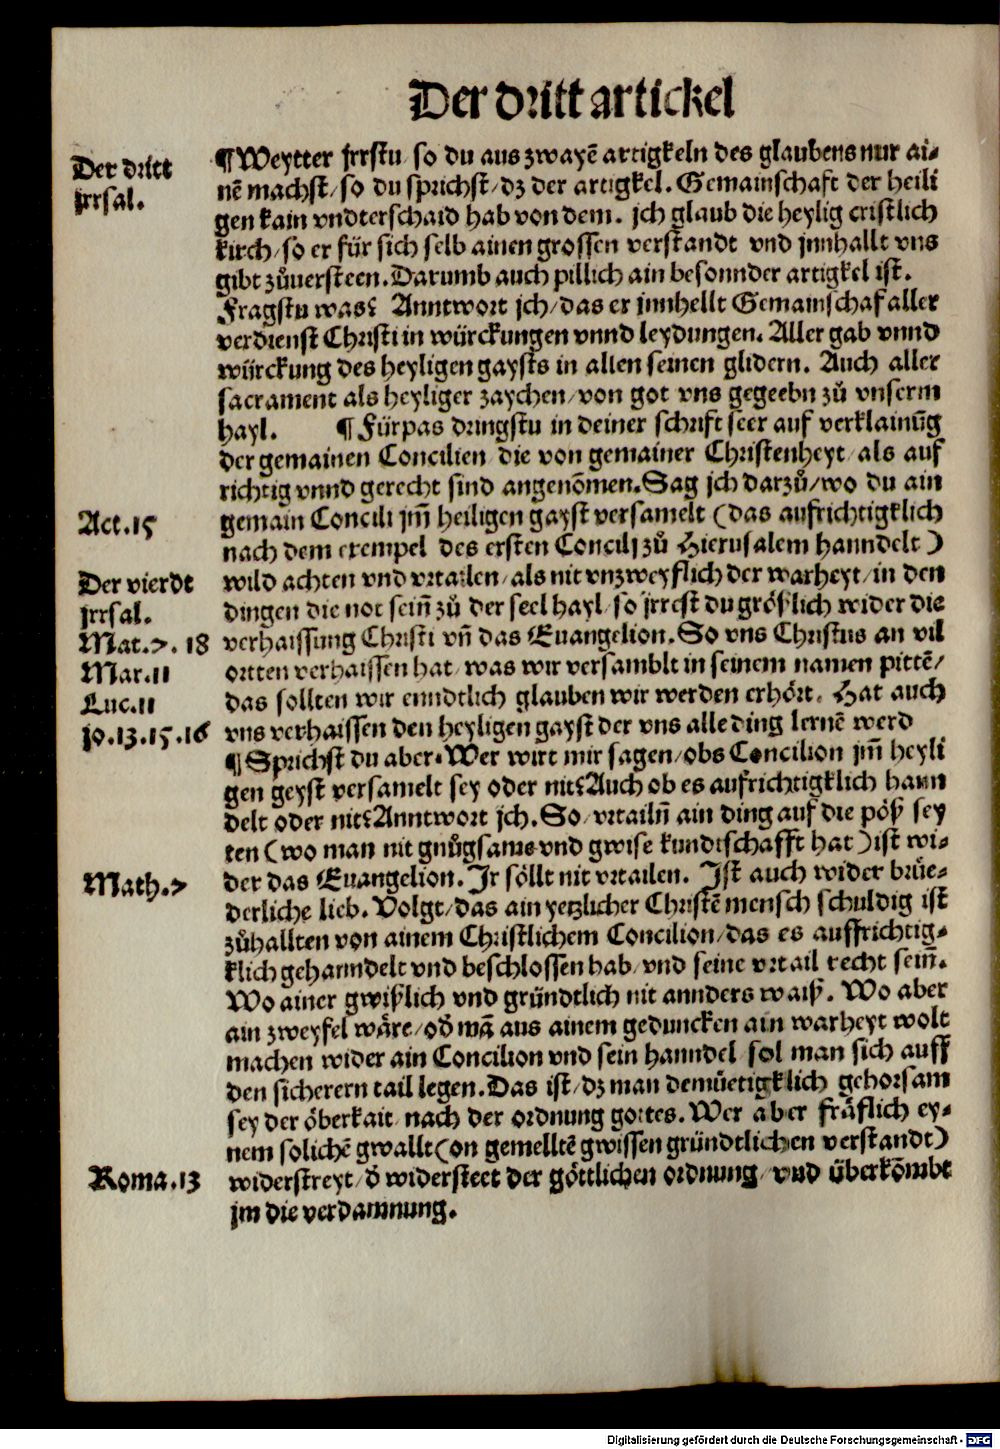 Der dritt artickel
Der dritt
jrrsal.
¶ Weytter jrrstu so du aus zwayē artigkeln des glaubens nur ai⸗
nē machst/ so du sprichst/ dz der artigkel. Gemainschaft der heili
gen kain vndterschaid hab von dem. jch glaub die heylig cristlich
kirch/ so er für sich selb ainen grossen verstandt vnd jnnhallt vns
gibt zůuersteen. Darumb auch pillich ain besonnder artigkel ist.
Fragstu was? Anntwort jch/ das er jnnhellt Gemainschaf aller
verdienst Christi in würckungen vnnd leydungen. Aller gab vnnd
würckung des heyligen gaysts in allen seinen glidern. Auch aller
sacrament als heyliger zaychen/ von got vns gegeebn zů vnserm
hayl. ¶ Fürpas dringstu in deiner schrift seer auf verklainūg
der gemainen Concilien/ die von gemainer Christenheyt/ als auf
richtig vnnd gerecht sind angenōmen. Sag jch darzů/ wo du ain
Act.15
gemain Concili jm̄ heiligen gayst versamelt (das aufrichtigklich
nach dem exempel des ersten Concilj zů Hierusalem hanndelt)
Der vierdt
jrrsal.
wild achten vnd vrtailen/ als nit vnzweyflich der warheyt/ in den
dingen die not sein̄ zů der seel hayl/ so jrrest du größlich wider die
Mat.7. 18
verhaissung Christi vn̄ das Euangelion. So vns Christus an vil
Mar.11
ortten verhaissen hat/ was wir versamblt in seinem namen pittē/
Luc.11
das sollten wir enndtlich glauben wir werden erhört. Hat auch
jo.13.15.16
vns verhaissen den heyligen gayst der vns alle ding lernē werd
¶ Sprichst du aber. Wer wirt mir sagen/ obs Concilion jm̄ heyli
gen geyst versamelt sey oder nit? Auch ob es aufrichtigklich hann
delt oder nit? Anntwort jch. So/ vrtailn̄ ain ding auf die pöß sey
ten (wo man nit gnůgsame vnd gwise kundtschafft hat) ist wi⸗
Math.7
der das Euangelion. Jr söllt nit vrtailen. Jst auch wider brüe⸗
derliche lieb. Volgt/ das ain yetzlicher Christē mensch schuldig ist
zůhallten von ainem Christlichem Concilion/ das es auffrichtig⸗
klich gehanndelt vnd beschlossen hab/ vnd seine vrtail recht sein̄.
Wo ainer gwißlich vnd gründtlich nit annders waiß. Wo aber
ain zweyfel wäre/ od̄ mā aus ainem geduncken ain warheyt wolt
machen wider ain Concilion vnd sein hanndel/ sol man sich auff
den sicherern tail legen. Das ist/ dz man demüetigklich gehorsam
sey der öberkait/ nach der ordnung gottes. Wer aber fräflich ey⸗
nem solichē gwallt (on gemelltē gwissen gründtlichen verstandt)
Roma.13
widerstreyt/ d̄ widersteet der göttlichen ordnung/ vnd überkōmbt
jm die verdamnung.
Digitalisierung gefördert durch die Deutsche Forschungsgemeinschaft - DFG